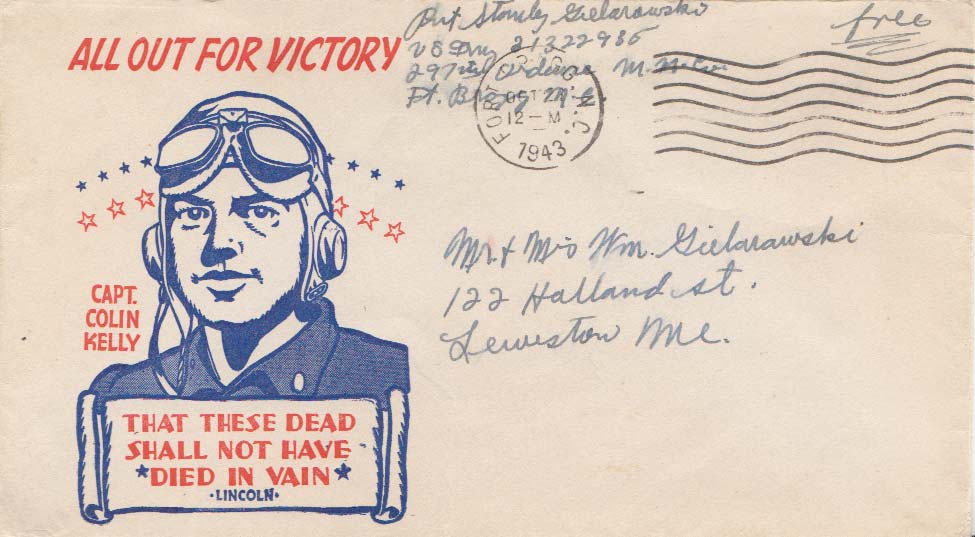 ALL OUT FOR VICTORY
Pvt Stanley Gielarowski
US Army 21322986
297th Ordnance M.
Ft. Bragg N.C.
free
FORT
N.C.
OCT 27
12-M
1943
CAPT.
COLIN
KELLY
Mr + Mrs Wm. Gielarawski
122 Halland st.
Lewiston Me.
THAT THESE DEAD
SHALL NOT HAVE
★DIED IN VAIN★
·LINCOLN·